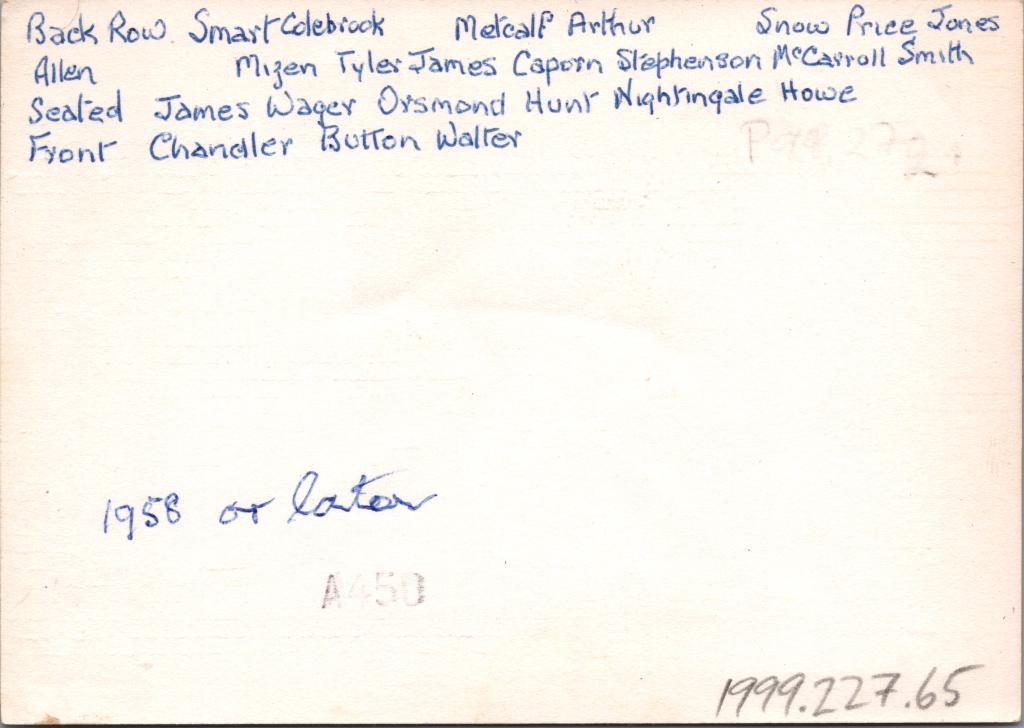 Back Row. Smart Colebrook Metcalf Arthur Snow Price Jones
Allen Mizen Tyler James Caporn Stephenson McCarroll Smith
Seated James Wager Orsmond Hunt Nightingale Howe
Front Chandler Button Walter
1958 or later
A450
1999.227.65